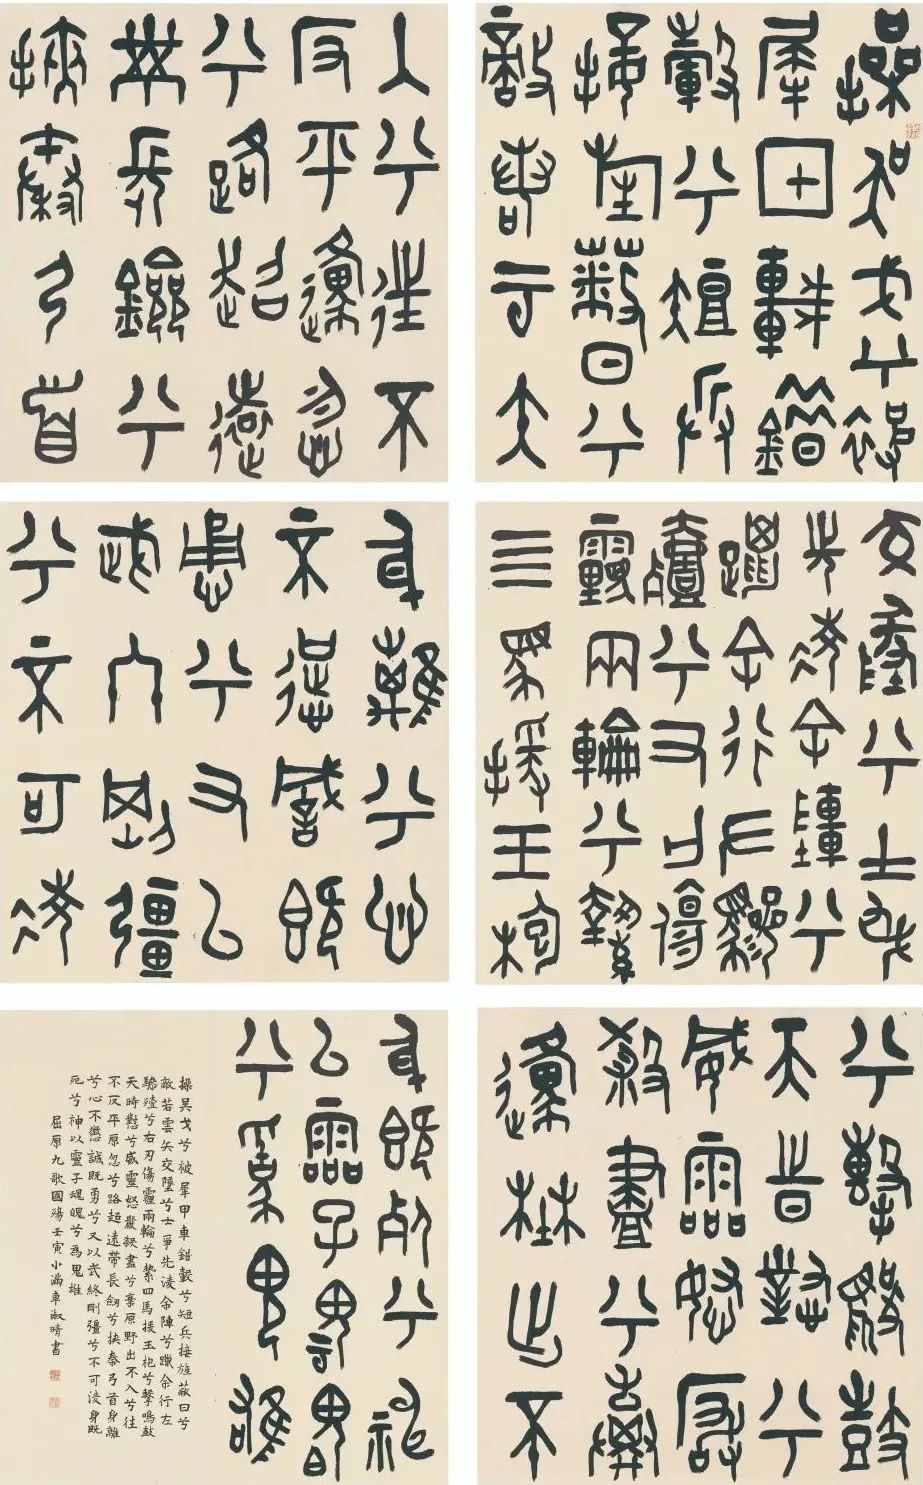 操吴戈兮被
犀甲車錯
轂兮短兵
接旌蔽日兮
敵若雲矢
交墜兮士爭
先淩余陣兮
躐余行左驂
殪兮右刃傷
霾兩輪兮縶
四馬援玉枹
兮擊鳴鼓
天時懟兮
威靈怒嚴
殺盡兮棄
原野出不
入兮往不
反平原忽
兮路超遠
帶長劍兮
挾秦弓首
身離兮心
不懲誠既
勇兮又以
武終剛彊
兮不可淩
身既死兮神
以靈子魂魄
兮為鬼雄
操吴戈兮被犀甲車錯轂兮短兵接旌蔽日兮
敵若雲矢交墜兮士爭先淩余陣兮躐余行左
驂殪兮右刃傷霾兩輪兮縶四馬援玉枹兮擊鳴鼓
天時懟兮威靈怒嚴殺盡兮棄原野出不入兮往
不反平原忽兮路超遠帶長劍兮挾秦弓首身離
兮心不懲誠既勇兮又以武終剛彊兮不可淩身既
死兮神以靈子魂魄兮為鬼雄
屈原九歌國殤壬寅小滿車淑晴書